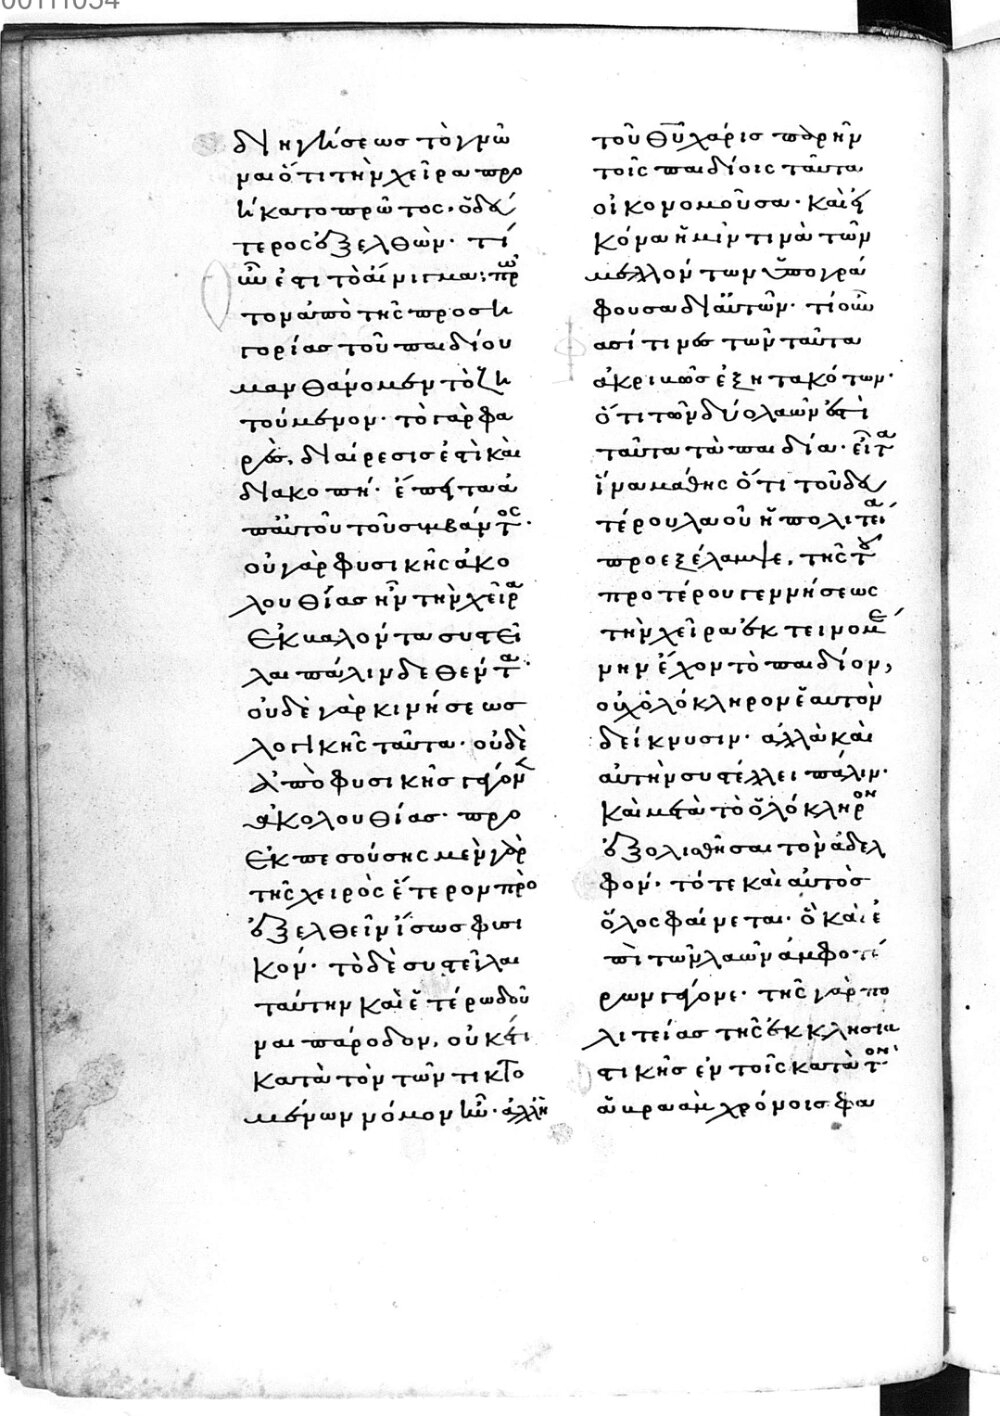 00111034
διηγήσεως τὸ γνῶ
ναι ὅτι τὴν χεῖρα προ
ήκατο πρῶτος· ὁ δεύ
τερος ἐξελθών· τί
οὖν ἐστι τὸ αἴνιγμα; πρῶ
τον ἀπὸ τῆς προση
γορίας τοῦ παιδίου
μανθάνομεν τὸ ζη
τούμενον· τὸ γὰρ φα
ρὲς, διαίρεσις ἐστὶ καὶ
διακοπή· ἔπειτα ἀ
π' αὐτοῦ τοῦ συμβάντος·
οὐ γὰρ φυσικῆς ἀκο
λουθίας ἦν τὴν χεῖρα
ἐκβαλόντα συστεῖ
λαι πάλιν δεθέντα·
οὐδὲ γὰρ κινήσεως
λογικῆς ταῦτα· οὐδὲ
ἀπὸ φυσικῆς γέγονεν
ἀκολουθίας· προ
εκπεσούσης μὲν γὰρ
τῆς χειρὸς ἕτερον προ
εξελθεῖν ἴσως φυσι
κόν· τὸ δὲ συστεῖλαι
ταύτην καὶ ἑτέρω δοῦ
ναι πάροδον, οὐκέτι
κατὰ τὸν τῶν τικτο
μένων νόμον ἦν· ἀλλ' ἡ
τοῦ θῦ χάρις παρῆν
τοῖς παιδίοις ταῦτα
οἰκονομοῦσα· καὶ εἰ
κόνα ἡμῖν τινὰ τῶν
μελλόντων ὑπογρά
φουσα δι' αὐτῶν· τί οὖν
φασί τινες τῶν ταῦτα
ἀκριβῶς ἐξητακότων·
ὅτι τῶν δύο λαῶν ἐστὶ
ταῦτα τὰ παιδία· εἶτα
ἵνα μάθης ὅτι τοῦ δευ
τέρου λαοῦ ἡ πολιτεία
προεξέλαμψε, τῆς τοῦ
προτέρου γεννήσεως
τὴν χεῖρα ἐκτεινομέ
νην ἔχον τὸ παιδίον,
οὐχ ὁλόκληρον ἑαυτὸν
δείκνυσιν· ἀλλὰ καὶ
αὐτὴν συστέλλει πάλιν·
καὶ μετὰ τὸ ὁλόκληρον
ἐξολισθῆσαι τὸν ἀδελ
φόν· τότε καὶ αὐτὸς
ὅλος φαίνεται· ὃ καὶ ἐ
πὶ τῶν λαῶν ἀμφοτέ
ρων γέγονε· τῆς γὰρ πο
λιτείας τῆς ἐκκλησια
στικῆς ἐν τοῖς κατὰ τὸν
ἄβρααμ χρόνοις φα